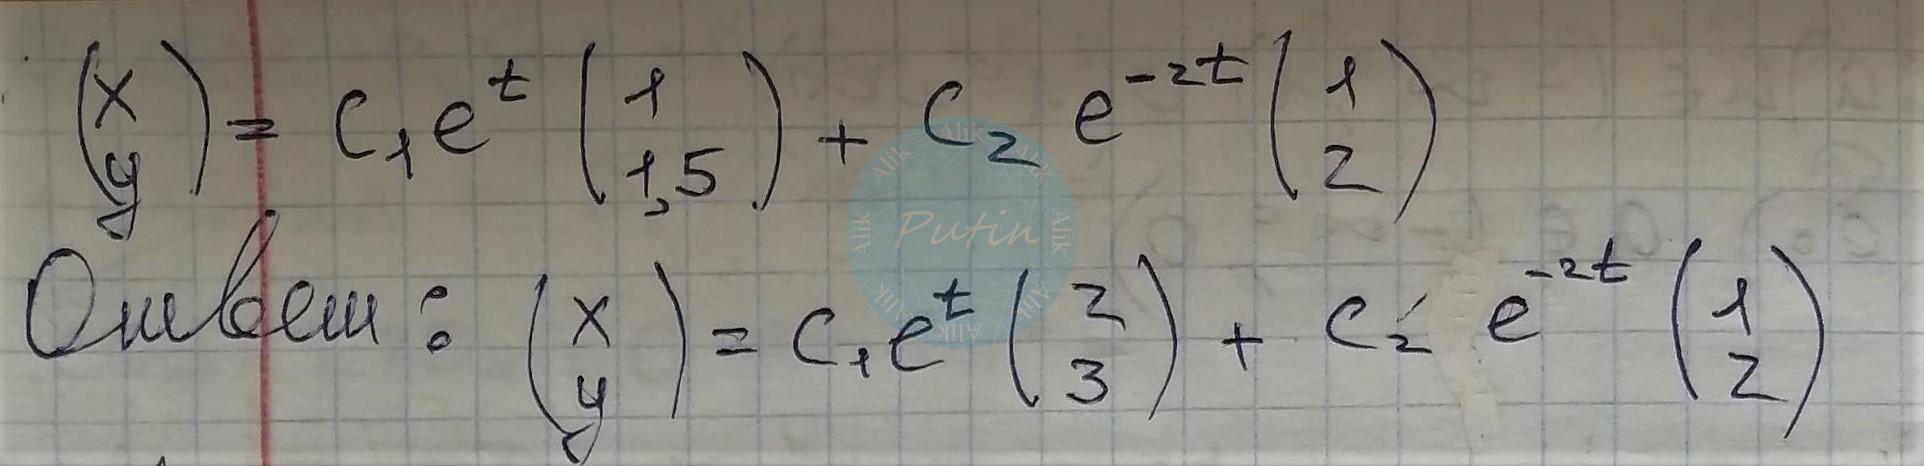 (x y) = C₁e^t (1 1,5) + C₂ e^{-2t} (1 2)
Ответ: (x y) = C₁e^t (2 3) + C₂ e^{-2t} (1 2)
Alik Putin